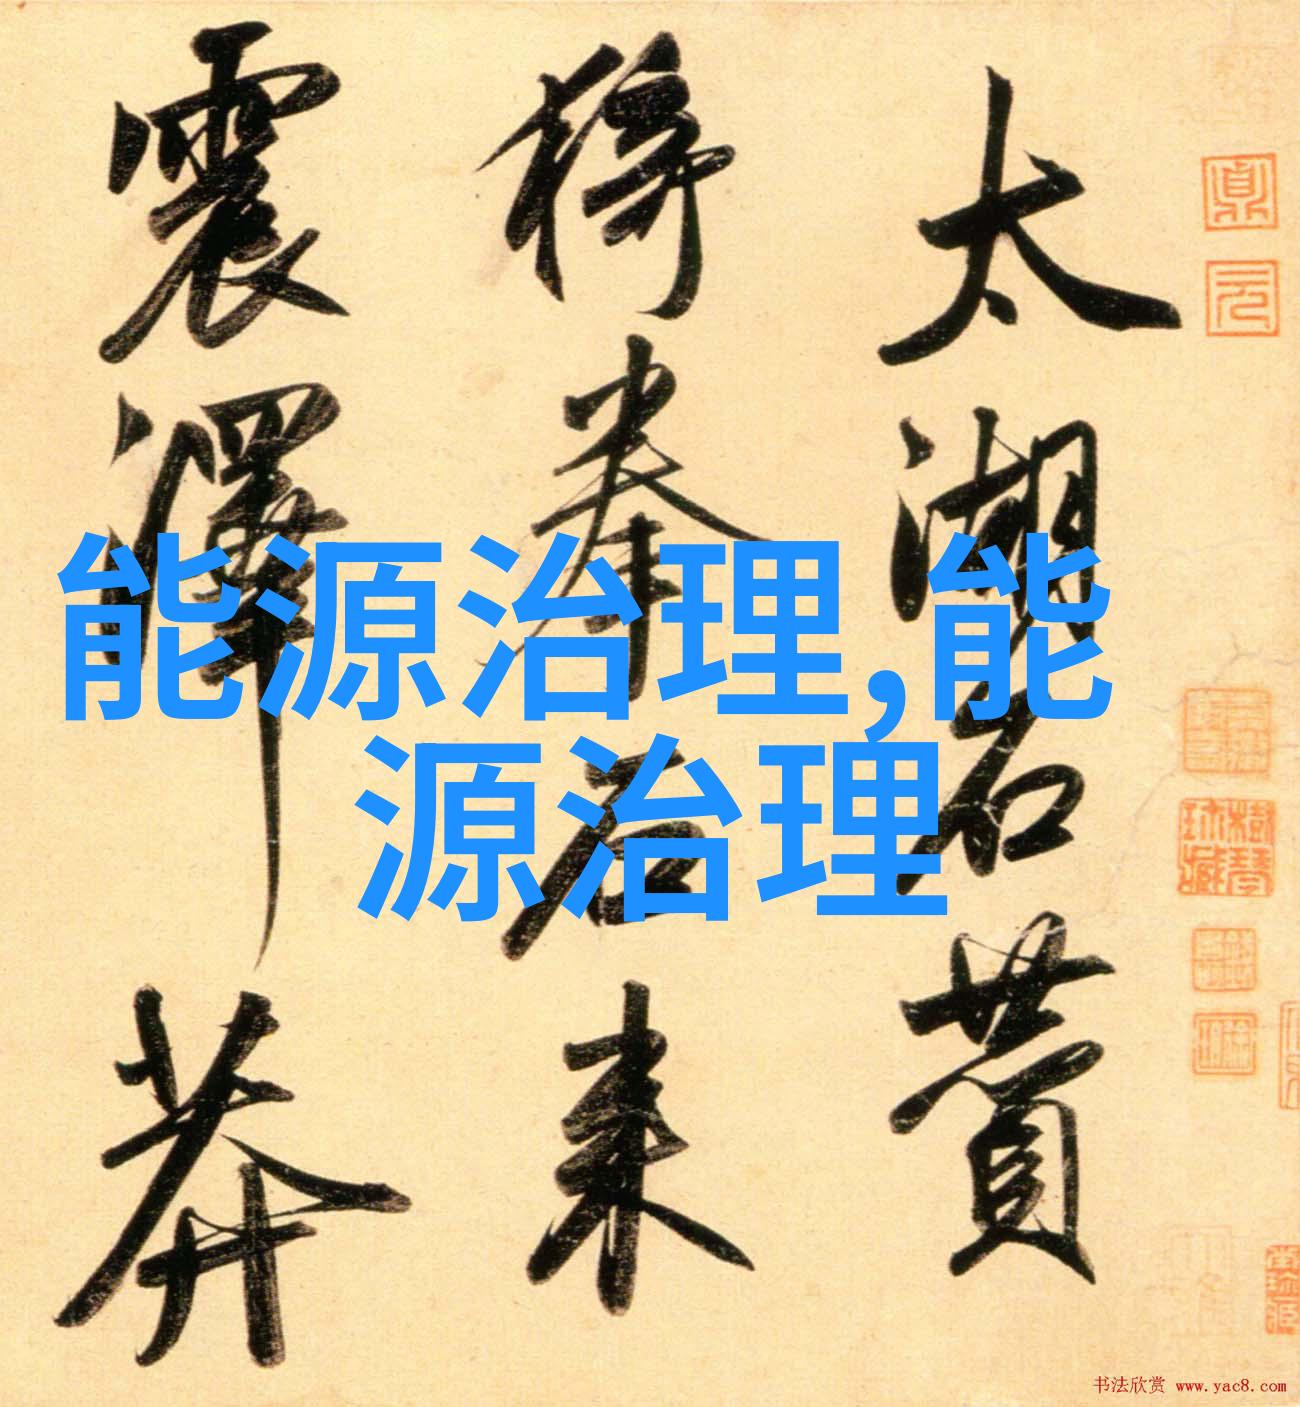 太湖石贊
猗拳石来
震澤莽
能源治理,能
源治理
书法欣赏 www.yac8.com